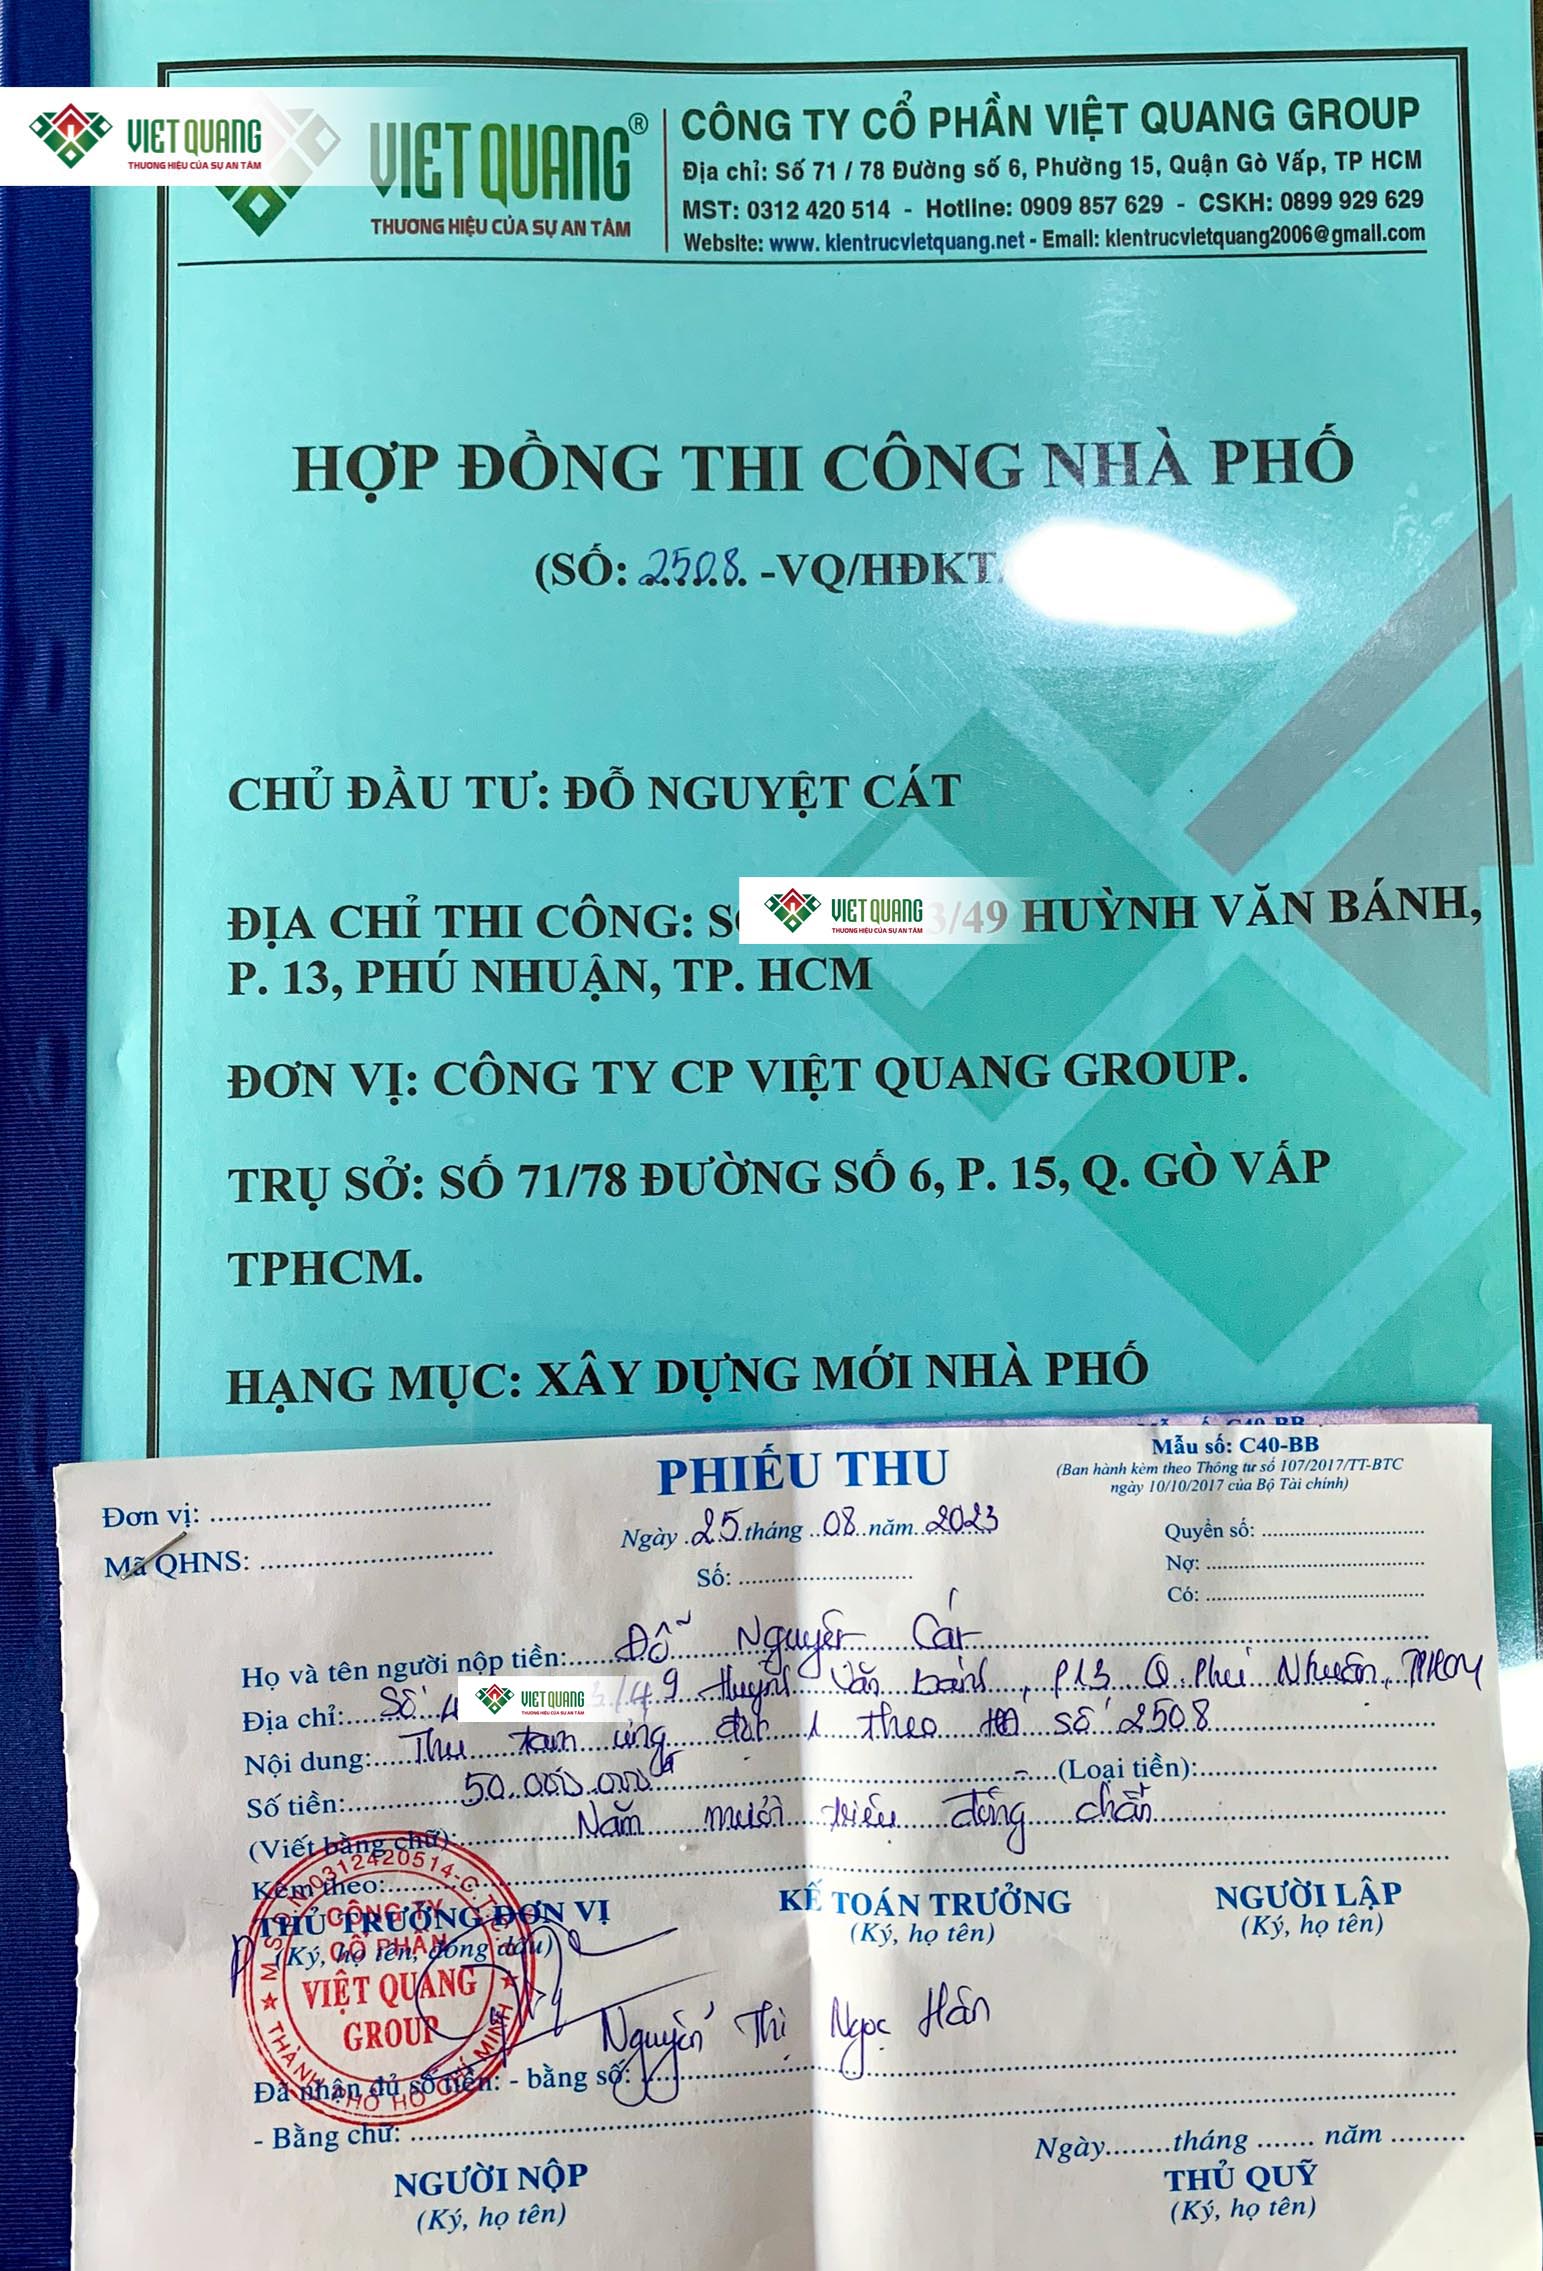 VIETQUANG
THƯƠNG HIỆU CỦA SỰ AN TÂM
VIETQUANG®
THƯƠNG HIỆU CỦA SỰ AN TÂM
CÔNG TY CỔ PHẦN VIỆT QUANG GROUP
Địa chỉ: Số 71 / 78 Đường số 6, Phường 15, Quận Gò Vấp, TP HCM
MST: 0312 420 514 - Hotline: 0909 857 629 - CSKH: 0899 929 629
Website: www. kientrucvietquang.net - Email: kientrucvietquang2006@gmail.com
HỢP ĐỒNG THI CÔNG NHÀ PHỐ
(SỐ: 2508. -VQ/HĐKT
CHỦ ĐẦU TƯ: ĐỖ NGUYỆT CÁT
ĐỊA CHỈ THI CÔNG: VIETQUANG THƯƠNG HIỆU CỦA SỰ AN TÂM 3/49 HUỲNH VĂN BÁNH,
P. 13, PHÚ NHUẬN, TP. HCM
ĐƠN VỊ: CÔNG TY CP VIỆT QUANG GROUP.
TRỤ SỞ: SỐ 71/78 ĐƯỜNG SỐ 6, P. 15, Q. GÒ VẤP
TPHCM.
HẠNG MỤC: XÂY DỰNG MỚI NHÀ PHỐ
PHIẾU THU
Mẫu số: C40-BB
(Ban hành kèm theo Thông tư số 107/2017/TT-BTC
ngày 10/10/2017 của Bộ Tài chính)
Đơn vị:
Mã QHNS:
Ngày 25 tháng 08 năm 2023
Số:
Quyển số:
Nợ:
Có:
Họ và tên người nộp tiền: Đỗ Nguyệt Cát
Địa chỉ: Số 4 VIETQUANG THƯƠNG HIỆU CỦA SỰ AN TÂM 3/49 Huỳnh Văn bánh, P13 Q Phú Nhuận, TPHCM
Nội dung: Thu tạm ứng đợt 1 theo HĐ số 2508
Số tiền: 50.000.000đ (Loại tiền):
(Viết bằng chữ): Năm mươi triệu đồng chẵn
Kèm theo:
THỦ TRƯỞNG ĐƠN VỊ
(Ký, họ tên, đóng dấu)
KẾ TOÁN TRƯỞNG
(Ký, họ tên)
NGƯỜI LẬP
(Ký, họ tên)
M.S.D.N:0312420514-C.T.C.P
CÔNG TY
CỔ PHẦN
VIỆT QUANG
GROUP
THÀNH PHỐ HỒ CHÍ MINH
Nguyễn Thị Ngọc Hân
Đã nhận đủ số tiền: - bằng số:
- Bằng chữ:
Ngày tháng năm
NGƯỜI NỘP
(Ký, họ tên)
THỦ QUỸ
(Ký, họ tên)